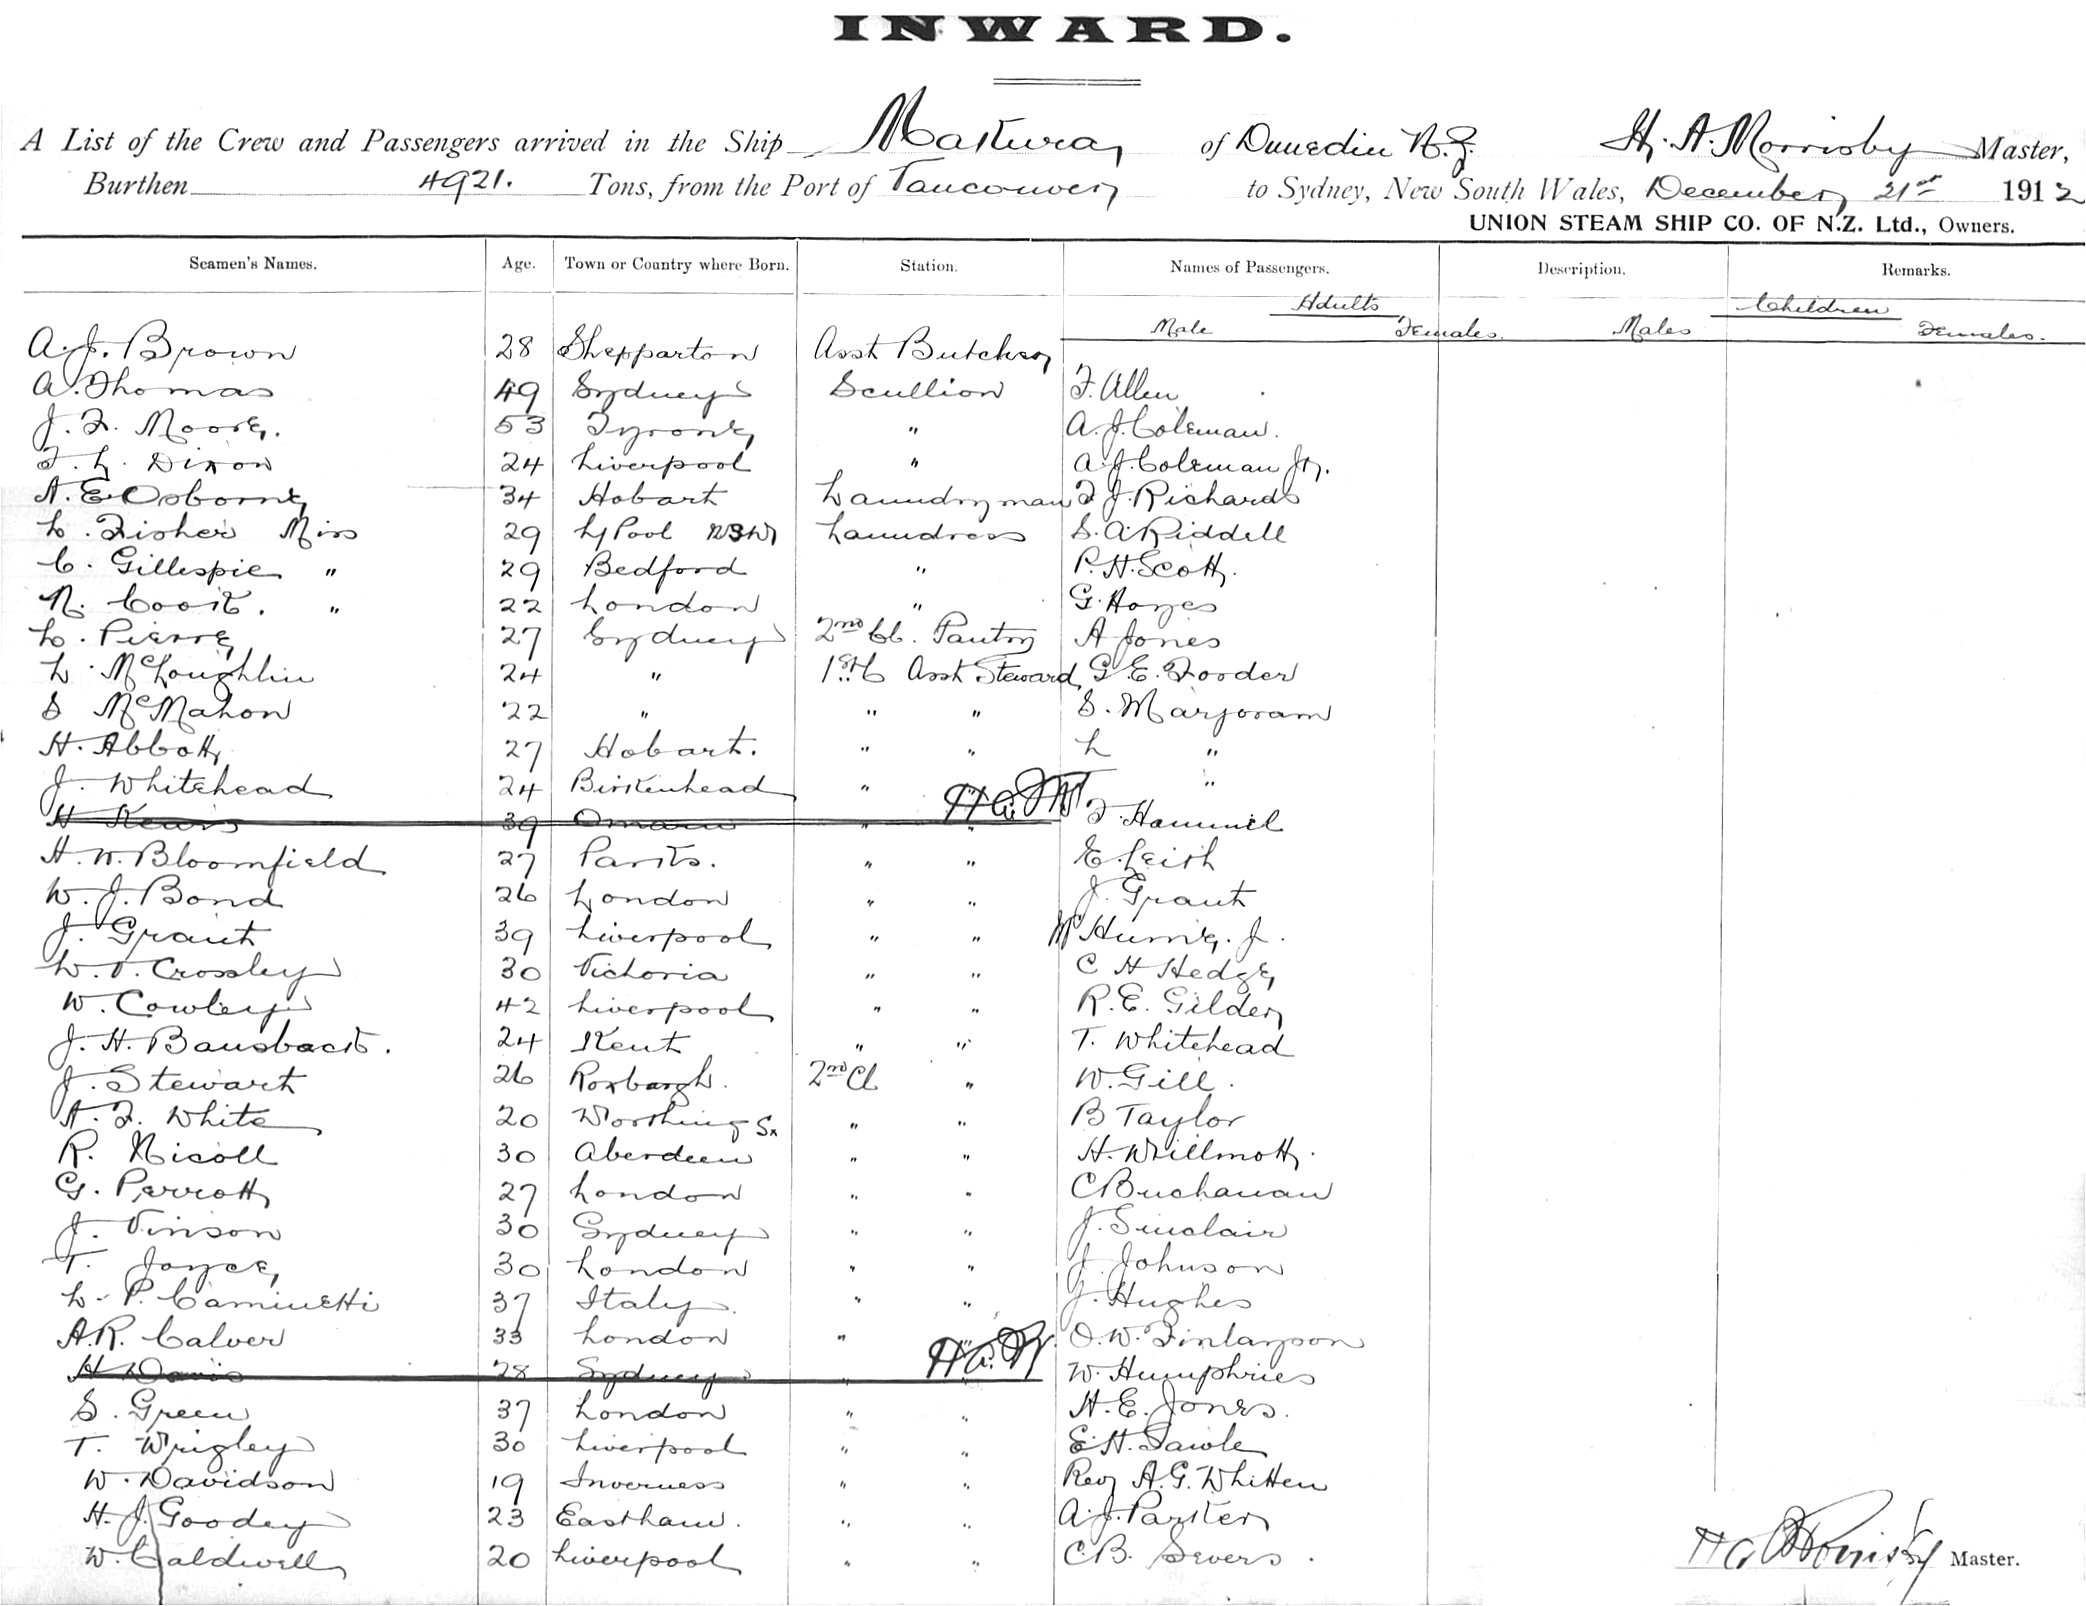 INWARD.
A List of the Crew and Passengers arrived in the Ship Makura of Dunedin N.Z. H. A. Morrisby Master,
Burthen 4921. Tons, from the Port of Vancouver to Sydney, New South Wales, December 21st 1912
UNION STEAM SHIP CO. OF N.Z. Ltd., Owners.
Seamen's Names. Age. Town or Country where Born. Station. Names of Passengers. Description. Remarks.
Adults Children
Male Females. Males Females.
A. J. Brown 28 Shepparton Asst Butcher
A. Thomas 49 Sydney Scullion F. Allen
J. F. Moore. 53 Tyrone " A. J. Coleman.
F. L. Dixon 24 Liverpool " A. J. Coleman Jr.
A. E Osborne 34 Hobart Laundryman F J. Richards
L. Fisher Miss 29 L'Pool NSW Laundress S. A. Riddell
C. Gillespie " 29 Bedford " P. H. Scott.
N. Cook. " 22 London " G. Hayes
L. Pierre 27 Sydney 2nd Cl. Pantry A Jones
L. McLoughlin 24 " 1st C Asst Steward G. E. Fooder
S McMahon 22 " " " S. Marjoram
H. Abbott 27 Hobart. " " L "
J. Whitehead 24 Birkenhead " "
H 39 " " H.A.M. F. Hammil
H. W. Bloomfield 27 Parks. " " E. Leish
W. J. Bond 26 London " " J. Grant
J. Grant 39 Liverpool " " McHumie. J.
W. V. Crossley 30 Victoria " " C H Hedge
W. Cowley 42 Liverpool " " R. E. Gilder
J. H. Bausback. 24 Kent " " T. Whitehead
J. Stewart 26 Roxburgh. 2nd Cl " W. Gill.
A. F. White 20 Worthing Sx " " B Taylor
R. Nicoll 30 Aberdeen " " H. Willmott.
G. Perrott 27 London " " C Buchanan
J. Vinson 30 Sydney " " J. Sinclair
T. Joyce 30 London " " J. Johnson
L. P. Caminetti 37 Italy. " " J. Hughes
A. R. Calver 33 London " " O. W. Finlayson
H Davis 28 Sydney " H.A.M. W. Humphries
S. Green 37 London " " H. E. Jones.
T. Wrigley 30 Liverpool " " E. H. Sawle
W. Davidson 19 Inverness " " Rev A. G. Whitten
H. J. Goodey 23 Eastham. " " A. J. Parker
W. Caldwell 20 Liverpool " " C B. Severs.
H A Morrisby Master.